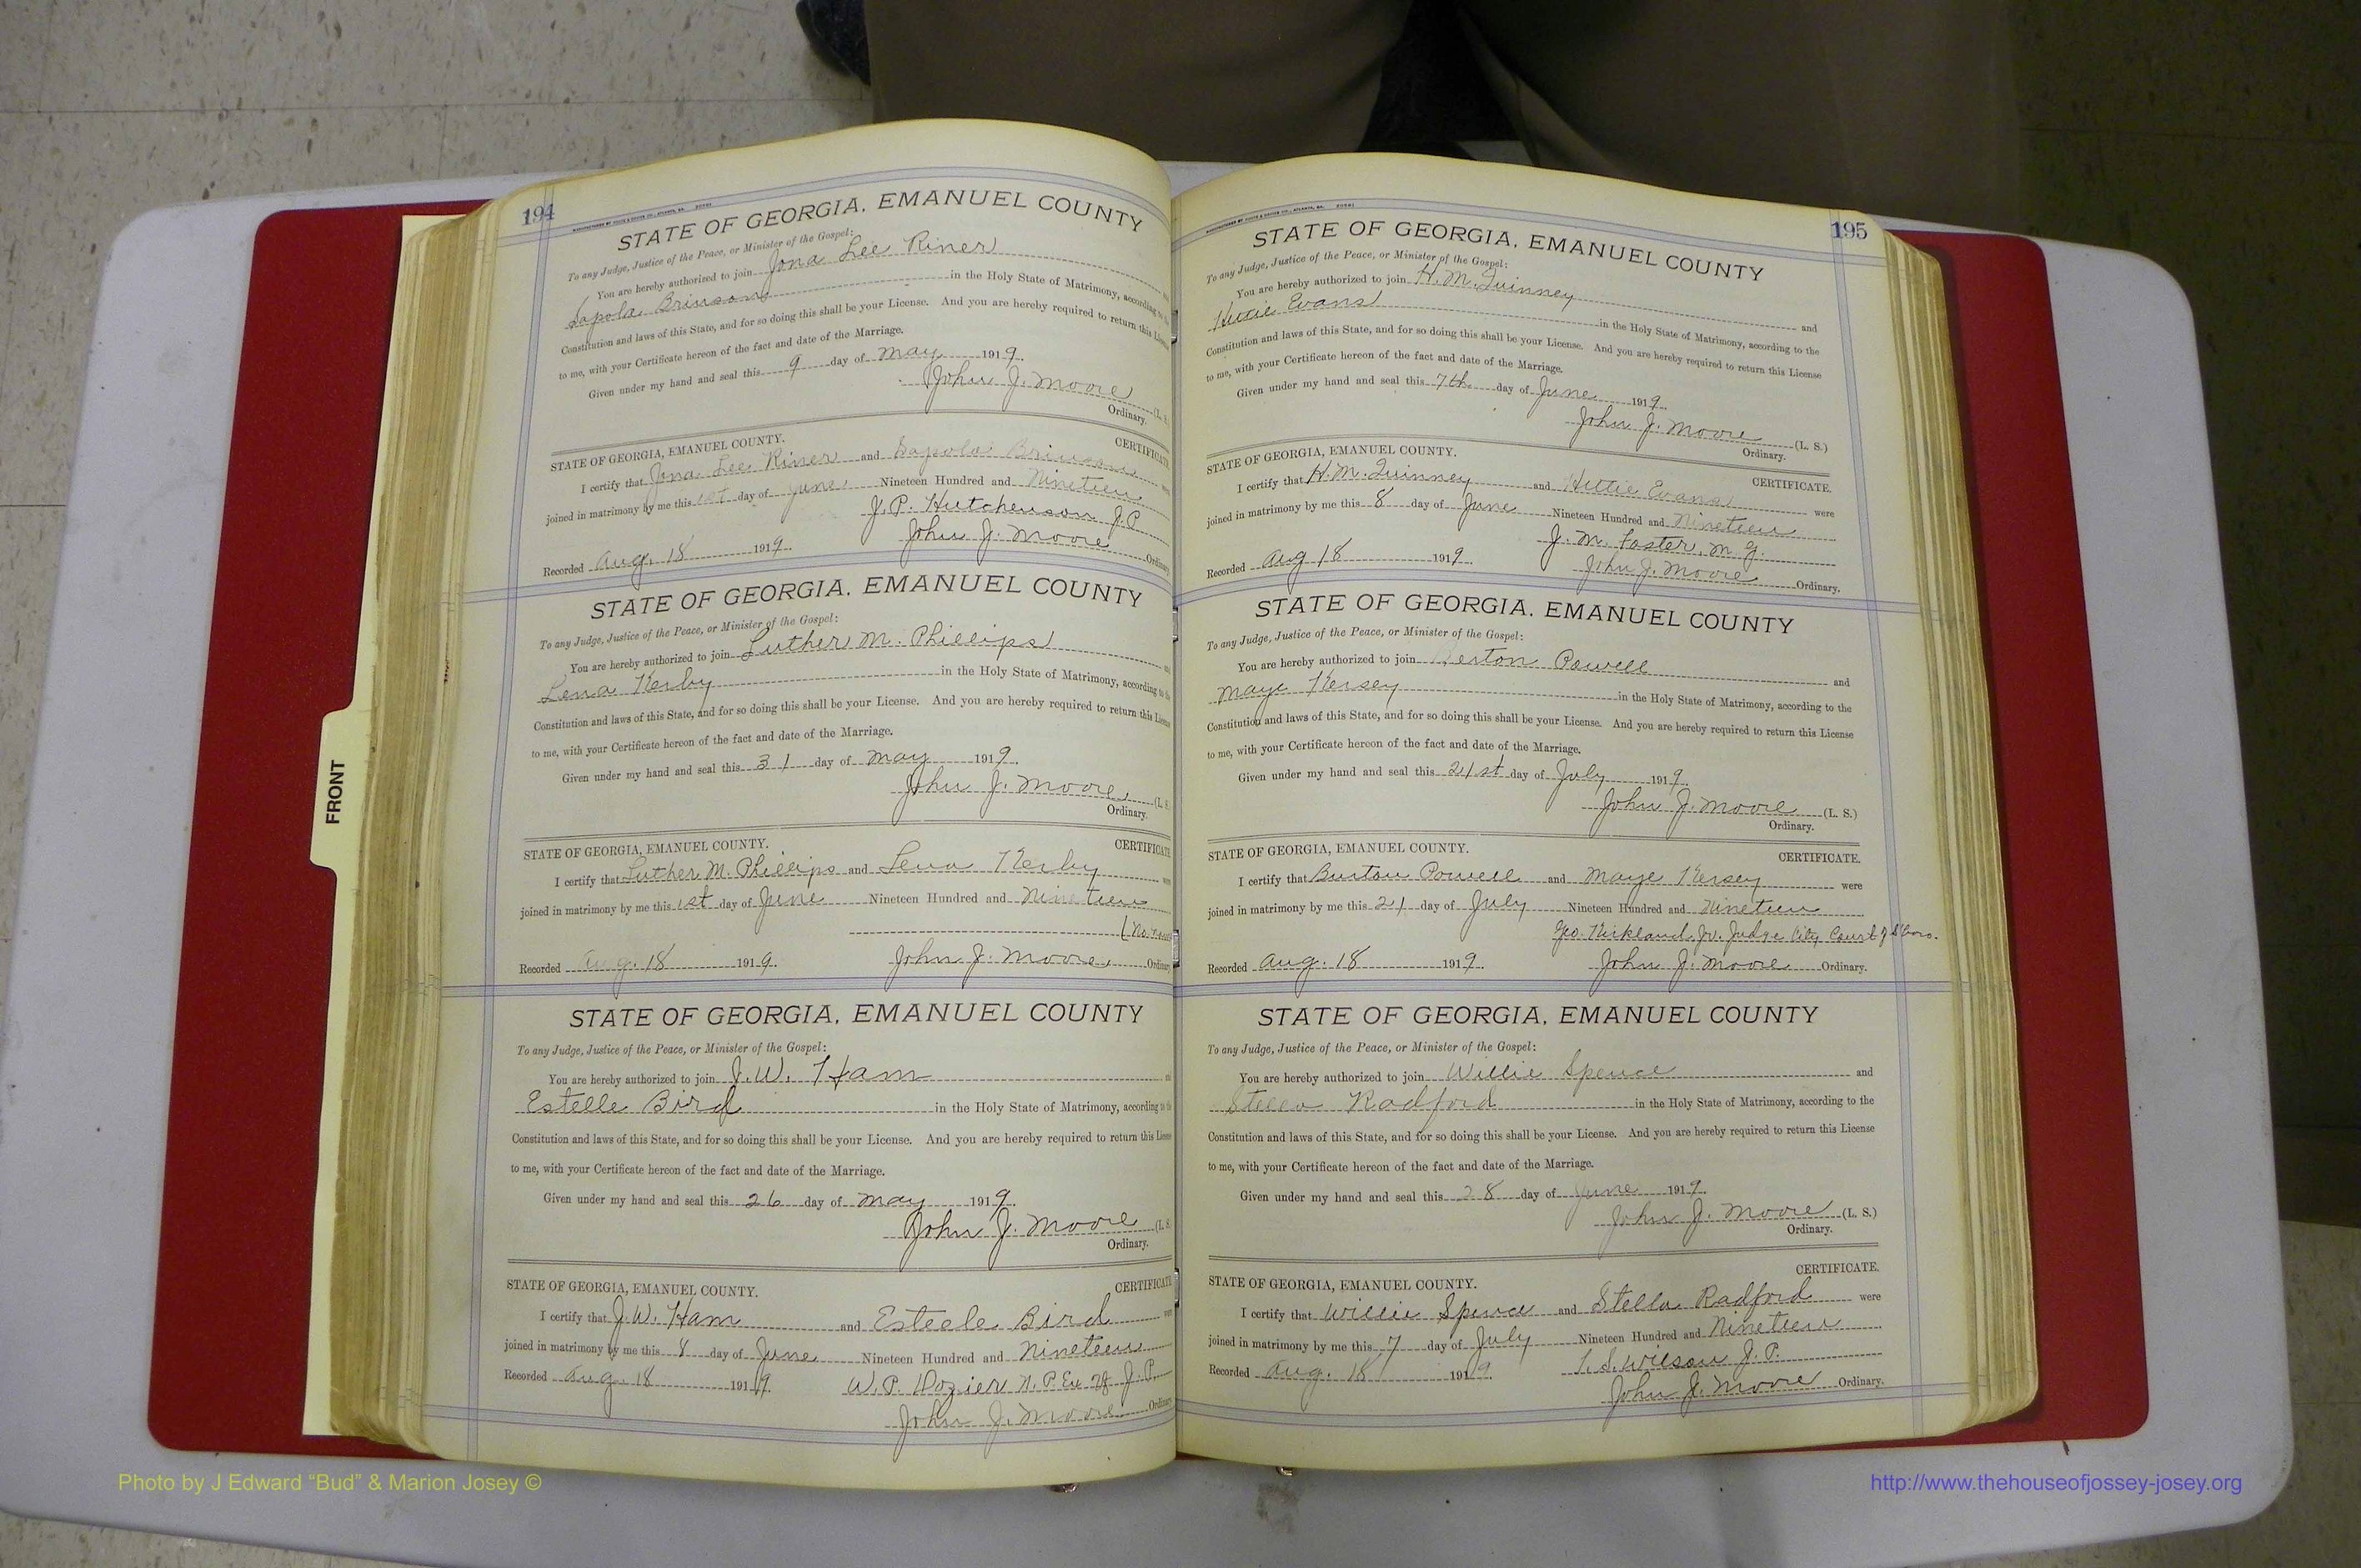 194
STATE OF GEORGIA, EMANUEL COUNTY
To any Judge, Justice of the Peace, or Minister of the Gospel:
You are hereby authorized to join Jona Lee Riner
Sapola Brinson in the Holy State of Matrimony, according to the
Constitution and laws of this State, and for so doing this shall be your License. And you are hereby required to return this License
to me, with your Certificate hereon of the fact and date of the Marriage.
Given under my hand and seal this 9 day of May 1919.
John J. Moore (L. S.
Ordinary.
STATE OF GEORGIA, EMANUEL COUNTY. CERTIFICATE
I certify that Jona Lee Riner and Sapola Brinson
joined in matrimony by me this 1st day of June Nineteen Hundred and Nineteen
J. P. Hutchenson J. P.
Recorded Aug. 18 1919. John J. Moore Ordinary
STATE OF GEORGIA, EMANUEL COUNTY
To any Judge, Justice of the Peace, or Minister of the Gospel:
You are hereby authorized to join Luther M. Phillips
Lena Kerby in the Holy State of Matrimony, according to the
Constitution and laws of this State, and for so doing this shall be your License. And you are hereby required to return this License
to me, with your Certificate hereon of the fact and date of the Marriage.
Given under my hand and seal this 31 day of May 1919.
John J. Moore (L. S
Ordinary.
STATE OF GEORGIA, EMANUEL COUNTY. CERTIFICATE
I certify that Luther M. Phillips and Lena Kerby
joined in matrimony by me this 1st day of June Nineteen Hundred and Nineteen
(No name
Recorded Aug. 18 1919. John J. Moore Ordinary
STATE OF GEORGIA, EMANUEL COUNTY
To any Judge, Justice of the Peace, or Minister of the Gospel:
You are hereby authorized to join J. W. Ham
Estelle Bird in the Holy State of Matrimony, according to the
Constitution and laws of this State, and for so doing this shall be your License. And you are hereby required to return this License
to me, with your Certificate hereon of the fact and date of the Marriage.
Given under my hand and seal this 26 day of May 1919.
John J. Moore (L. S.
Ordinary.
STATE OF GEORGIA, EMANUEL COUNTY. CERTIFICATE
I certify that J. W. Ham and Estelle Bird
joined in matrimony by me this 8 day of June Nineteen Hundred and Nineteen
Recorded Aug. 18 1919. W. P. Dozier N. P. Ex Of J. P.
John J. Moore Ordinary
195
STATE OF GEORGIA, EMANUEL COUNTY
To any Judge, Justice of the Peace, or Minister of the Gospel:
You are hereby authorized to join H. M. Quinney and
Hittie Evans in the Holy State of Matrimony, according to the
Constitution and laws of this State, and for so doing this shall be your License. And you are hereby required to return this License
to me, with your Certificate hereon of the fact and date of the Marriage.
Given under my hand and seal this 7th day of June 1919.
John J. Moore (L. S.)
Ordinary.
STATE OF GEORGIA, EMANUEL COUNTY. CERTIFICATE.
I certify that H. M. Quinney and Hittie Evans were
joined in matrimony by me this 8 day of June Nineteen Hundred and Nineteen
J. M. Foster, M. G.
Recorded Aug 18 1919. John J. Moore Ordinary.
STATE OF GEORGIA, EMANUEL COUNTY
To any Judge, Justice of the Peace, or Minister of the Gospel:
You are hereby authorized to join Powell and
Maye Kersey in the Holy State of Matrimony, according to the
Constitution and laws of this State, and for so doing this shall be your License. And you are hereby required to return this License
to me, with your Certificate hereon of the fact and date of the Marriage.
Given under my hand and seal this 21st day of July 1919.
John J. Moore (L. S.)
Ordinary.
STATE OF GEORGIA, EMANUEL COUNTY. CERTIFICATE.
I certify that Burton Powell and Maye Kersey were
joined in matrimony by me this 21 day of July Nineteen Hundred and Nineteen
Geo. Kirkland, Jr. Judge City Court of S'boro.
Recorded Aug. 18 1919. John J. Moore Ordinary.
STATE OF GEORGIA, EMANUEL COUNTY
To any Judge, Justice of the Peace, or Minister of the Gospel:
You are hereby authorized to join Willie Spence and
Stella Radford in the Holy State of Matrimony, according to the
Constitution and laws of this State, and for so doing this shall be your License. And you are hereby required to return this License
to me, with your Certificate hereon of the fact and date of the Marriage.
Given under my hand and seal this 28 day of June 1919.
John J. Moore (L. S.)
Ordinary.
STATE OF GEORGIA, EMANUEL COUNTY. CERTIFICATE.
I certify that Willie Spence and Stella Radford were
joined in matrimony by me this 7 day of July Nineteen Hundred and Nineteen
Recorded Aug. 18 1919. Wilson J. P.
John J. Moore Ordinary.
FRONT
Photo by J Edward “Bud” & Marion Josey ©
http://www.thehouseofjossey-josey.org